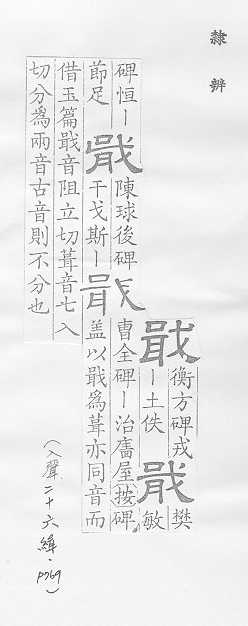 隸辨
戢
衡方碑戎
丨土佚
戢
樊
敏
碑恒丨
節足
戢
陳球後碑
干戈斯丨
戢
曹全碑丨治廥屋(按)碑
盖以戢爲葺亦同音而
借玉篇戢音阻立切葺音七入
切分爲兩音古音則不分也
(入聲二十六緝·P769)